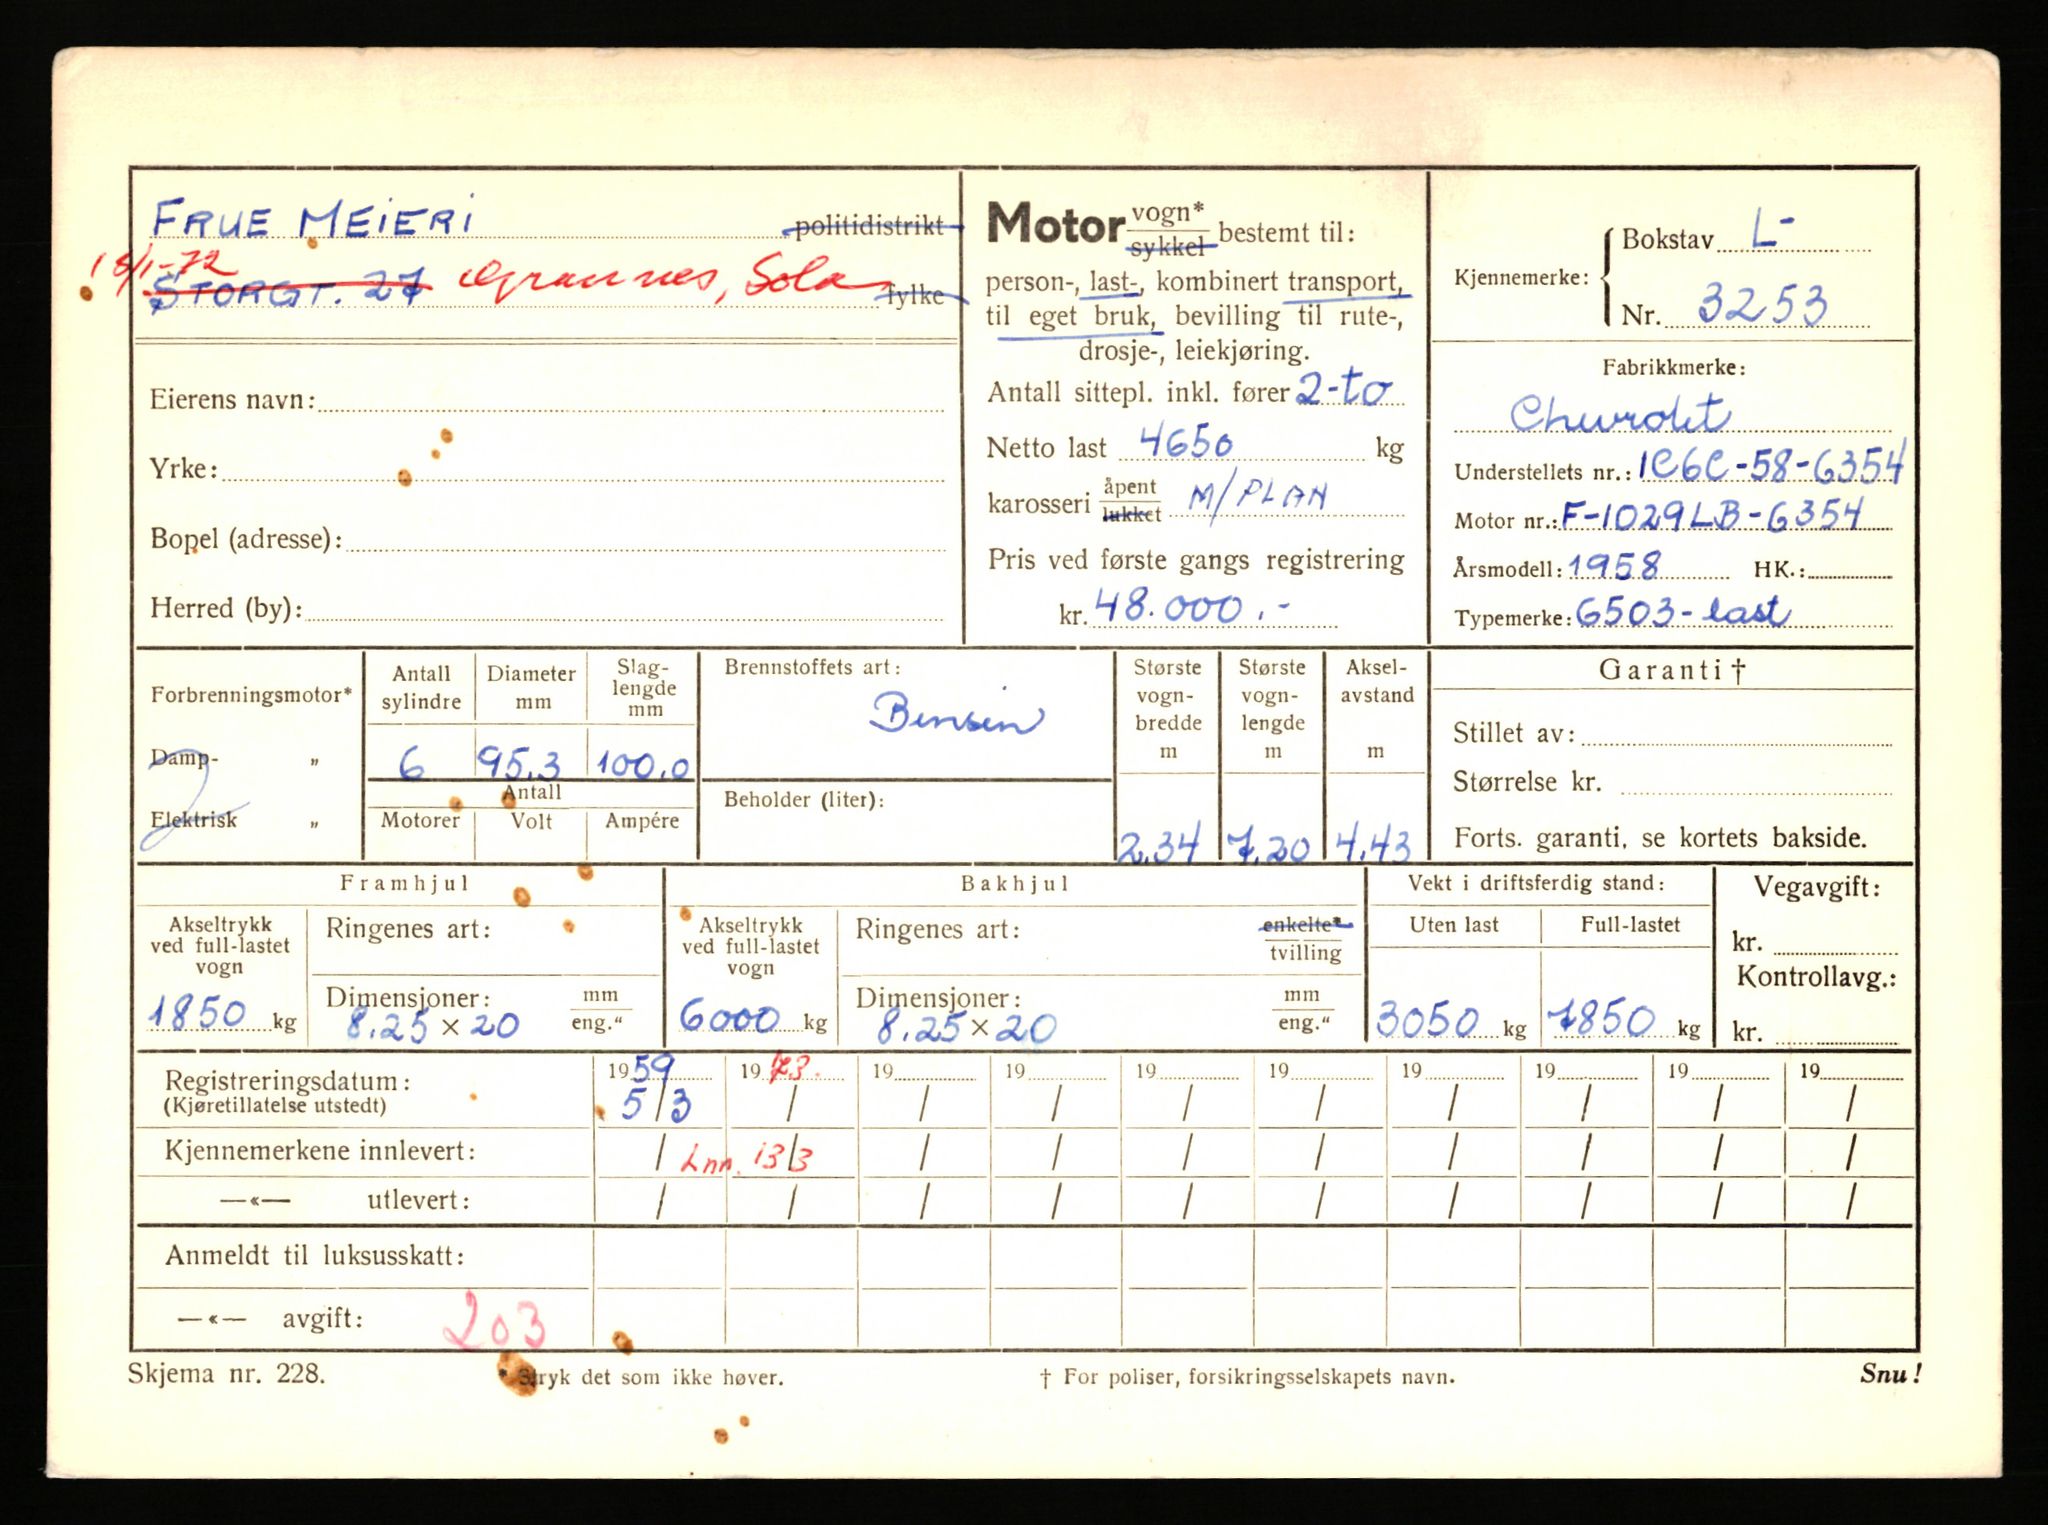 FRUE MEIERI politidistrikt
18/1-72
STORGT. 27 Grannes, Sola fylke
Eierens navn:
Yrke:
Bopel (adresse):
Herred (by):
Motor vogn* sykkel bestemt til:
person-, last-, kombinert transport,
til eget bruk, bevilling til rute-,
drosje-, leiekjøring.
Antall sittepl. inkl. fører 2-to
Netto last 4650 kg
karosseri åpent lukket M/PLAN
Pris ved første gangs registrering
kr. 48.000.-
Kjennemerke: Bokstav L-
Nr. 3253
Fabrikkmerke:
Chevrolet
Understellets nr.: 1C6C-58-6354
Motor nr.: F-1029LB-6354
Årsmodell: 1958 HK.:
Typemerke: 6503-last
Forbrenningsmotor*
Damp- „
Elektrisk „
2
Antall sylindre
Diameter mm
Slag-lengde mm
6 95.3 100.0
Antall
Motorer Volt Ampére
Brennstoffets art:
Bensin
Beholder (liter):
Største vogn-bredde m
Største vogn-lengde m
Aksel-avstand m
2.34 7.20 4.43
Garanti †
Stillet av:
Størrelse kr.
Forts. garanti, se kortets bakside.
Framhjul
Akseltrykk ved full-lastet vogn
1850 kg
Ringenes art:
Dimensjoner: mm eng."
8.25 × 20
Bakhjul
Akseltrykk ved full-lastet vogn
6000 kg
Ringenes art: enkelte* tvilling
Dimensjoner: mm eng."
8.25 × 20
Vekt i driftsferdig stand:
Uten last Full-lastet
3050 kg 7850 kg
Vegavgift:
kr.
Kontrollavg.:
kr.
Registreringsdatum: 1959 1973. 19 19 19 19 19 19 19 19
(Kjøretillatelse utstedt) 5/3 / / / / / / / / /
Kjennemerkene innlevert: / Inn. 13/3 / / / / / / / /
—«— utlevert: / / / / / / / / / /
Anmeldt til luksusskatt:
—«— avgift: 203
Skjema nr. 228. * Stryk det som ikke høver. † For poliser, forsikringsselskapets navn. Snu!